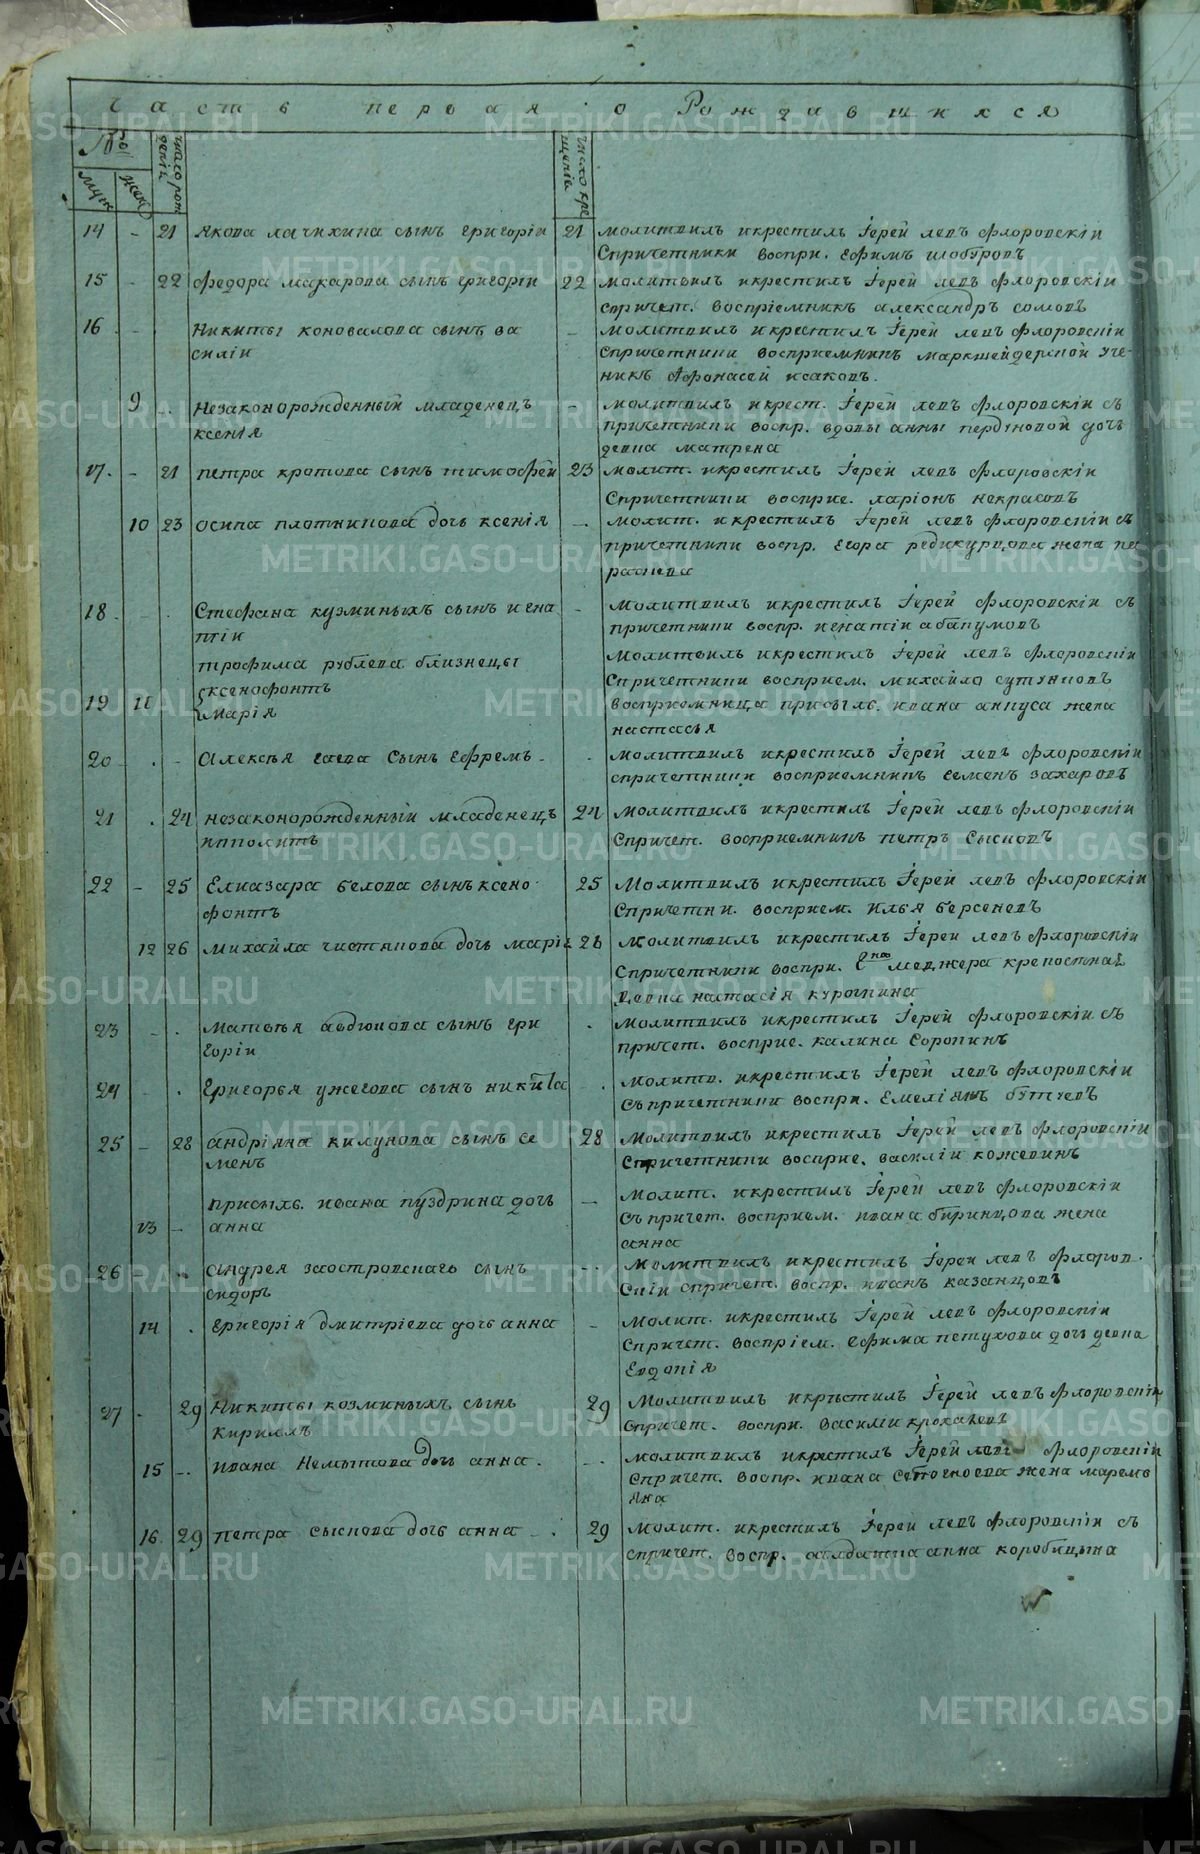 Часть первая о Рождавшихся
№
муж
жен
число рож
денiя
число кре
щенiя
14 - 21 Якова лачихина сынъ григорiи 21 молитвилъ икрестилъ Iерей левъ флоровскiи
Спричетники воспри. Ефимъ шобуровъ
15 - 22 федора макарова сынъ григорiи 22 молитвилъ икрестилъ Iерей левъ флоровскiи
спричет. воспрiемникъ александръ сомовъ
16 - . Никиты коновалова сынъ ва - молитвилъ икрестилъ Iерей левъ флоровскiи
силiи Спричетники восприемникъ маркшейдерской уче-
никъ Афонасей исаковъ.
9 . незаконорожденный младенецъ - молитвилъ икрест. Iерей левъ флоровскiи съ
ксенiя причетники воспр. вдовы анны дочь
девка матрена
17. - 21 петра кротова сынъ тимофей 23 молит. икрестилъ Iерей левъ флоровскiи
Спричетники восприе. ларiонъ некрасовъ
10 23 осипа плотникова дочь ксенiя - молит. икрестилъ Iерей левъ флоровскiи съ
причетники воспр. Егора редикурцова жена па
раскева
18 - . Стефана кузминыхъ сынъ игна - молитвилъ икрестилъ Iерей флоровскiи съ
тiи причетники воспр. игнатiи абакумовъ
трофима рублева близнецы молитвилъ икрестилъ Iерей левъ флоровскiи
ксенофонтъ Спричетники восприем. михайло сутунковъ
19 11 марiя восприемница присылъ. ивана анкуса жена
настасья
20 - . - Алексъя гаева сынъ Ефремъ - . молитвилъ икрестилъ Iерей левъ флоровскiи
спричетники восприемникъ семенъ захаровъ
21 . 24 незаконорожденный младенецъ 24 молитвилъ икрестилъ Iерей левъ флоровскiи
ипполитъ Спричет. восприемникъ петръ Сысковъ
22 - 25 Елиазара белова сынъ ксено 25 Молитвилъ икрестилъ Iерей левъ флоровскiи
фонтъ Спричетни. восприем. Илья берсеневъ
12 26 михайла чистякова дочь марiя 26 Молитвилъ икрестилъ Iерей левъ флоровскiи
Спричетники воспри. Гна меджера крепостная
Девка настасiя курочкина
23 - . Матвъя авдюкова сынъ гри . молитвилъ икрестилъ Iерей флоровскiи съ
горiи причет. восприе. калина Сорокинъ
24 - . Григорья ужегова сынъ никита - . молитв. икрестилъ Iерей левъ флоровскiи
съпричетники воспри. Емелiянъ бутуевъ
25 - 28 андрiяна килунова сынъ се 28 Молитвилъ икрестилъ Iерей левъ флоровскiи
менъ Спричетники восприе. василiи кожевинъ
присылъ. ивана пуздрина дочь - молит. икрестилъ Iерей левъ флоровскiи
13 - анна съпричет. восприем. ивана биринцова жена
анна
26 - Андрея заостровскаго сынъ - . Молитвилъ икрестилъ Iерей левъ флоров
сидоръ скiи спричет. воспр. иванъ казанцовъ
14 . григорiя дмитрiева дочь анна - молит. икрестилъ Iерей левъ флоровскiи
Спричет. воспрiем. Ефима петухова дочь девка
Евдокiя
27 - 29 Никиты козминыхъ сынъ 29 Молитвилъ икрестилъ Iерей левъ флоровскiи
кирилъ Спричет. воспри. Васили крохалевъ
15 - . ивана Немытова дочь анна . - . молитвилъ икрестилъ Iерей левъ флоровскiи
Спричет. воспр. ивана жена маремь
яна
16. 29 петра сыскова дочь анна - . 29 Молит. икрестилъ Iерей левъ флоровскiи съ
спричет. воспр. салдатка анна коробицына
METRIKI.GASO-URAL.RU